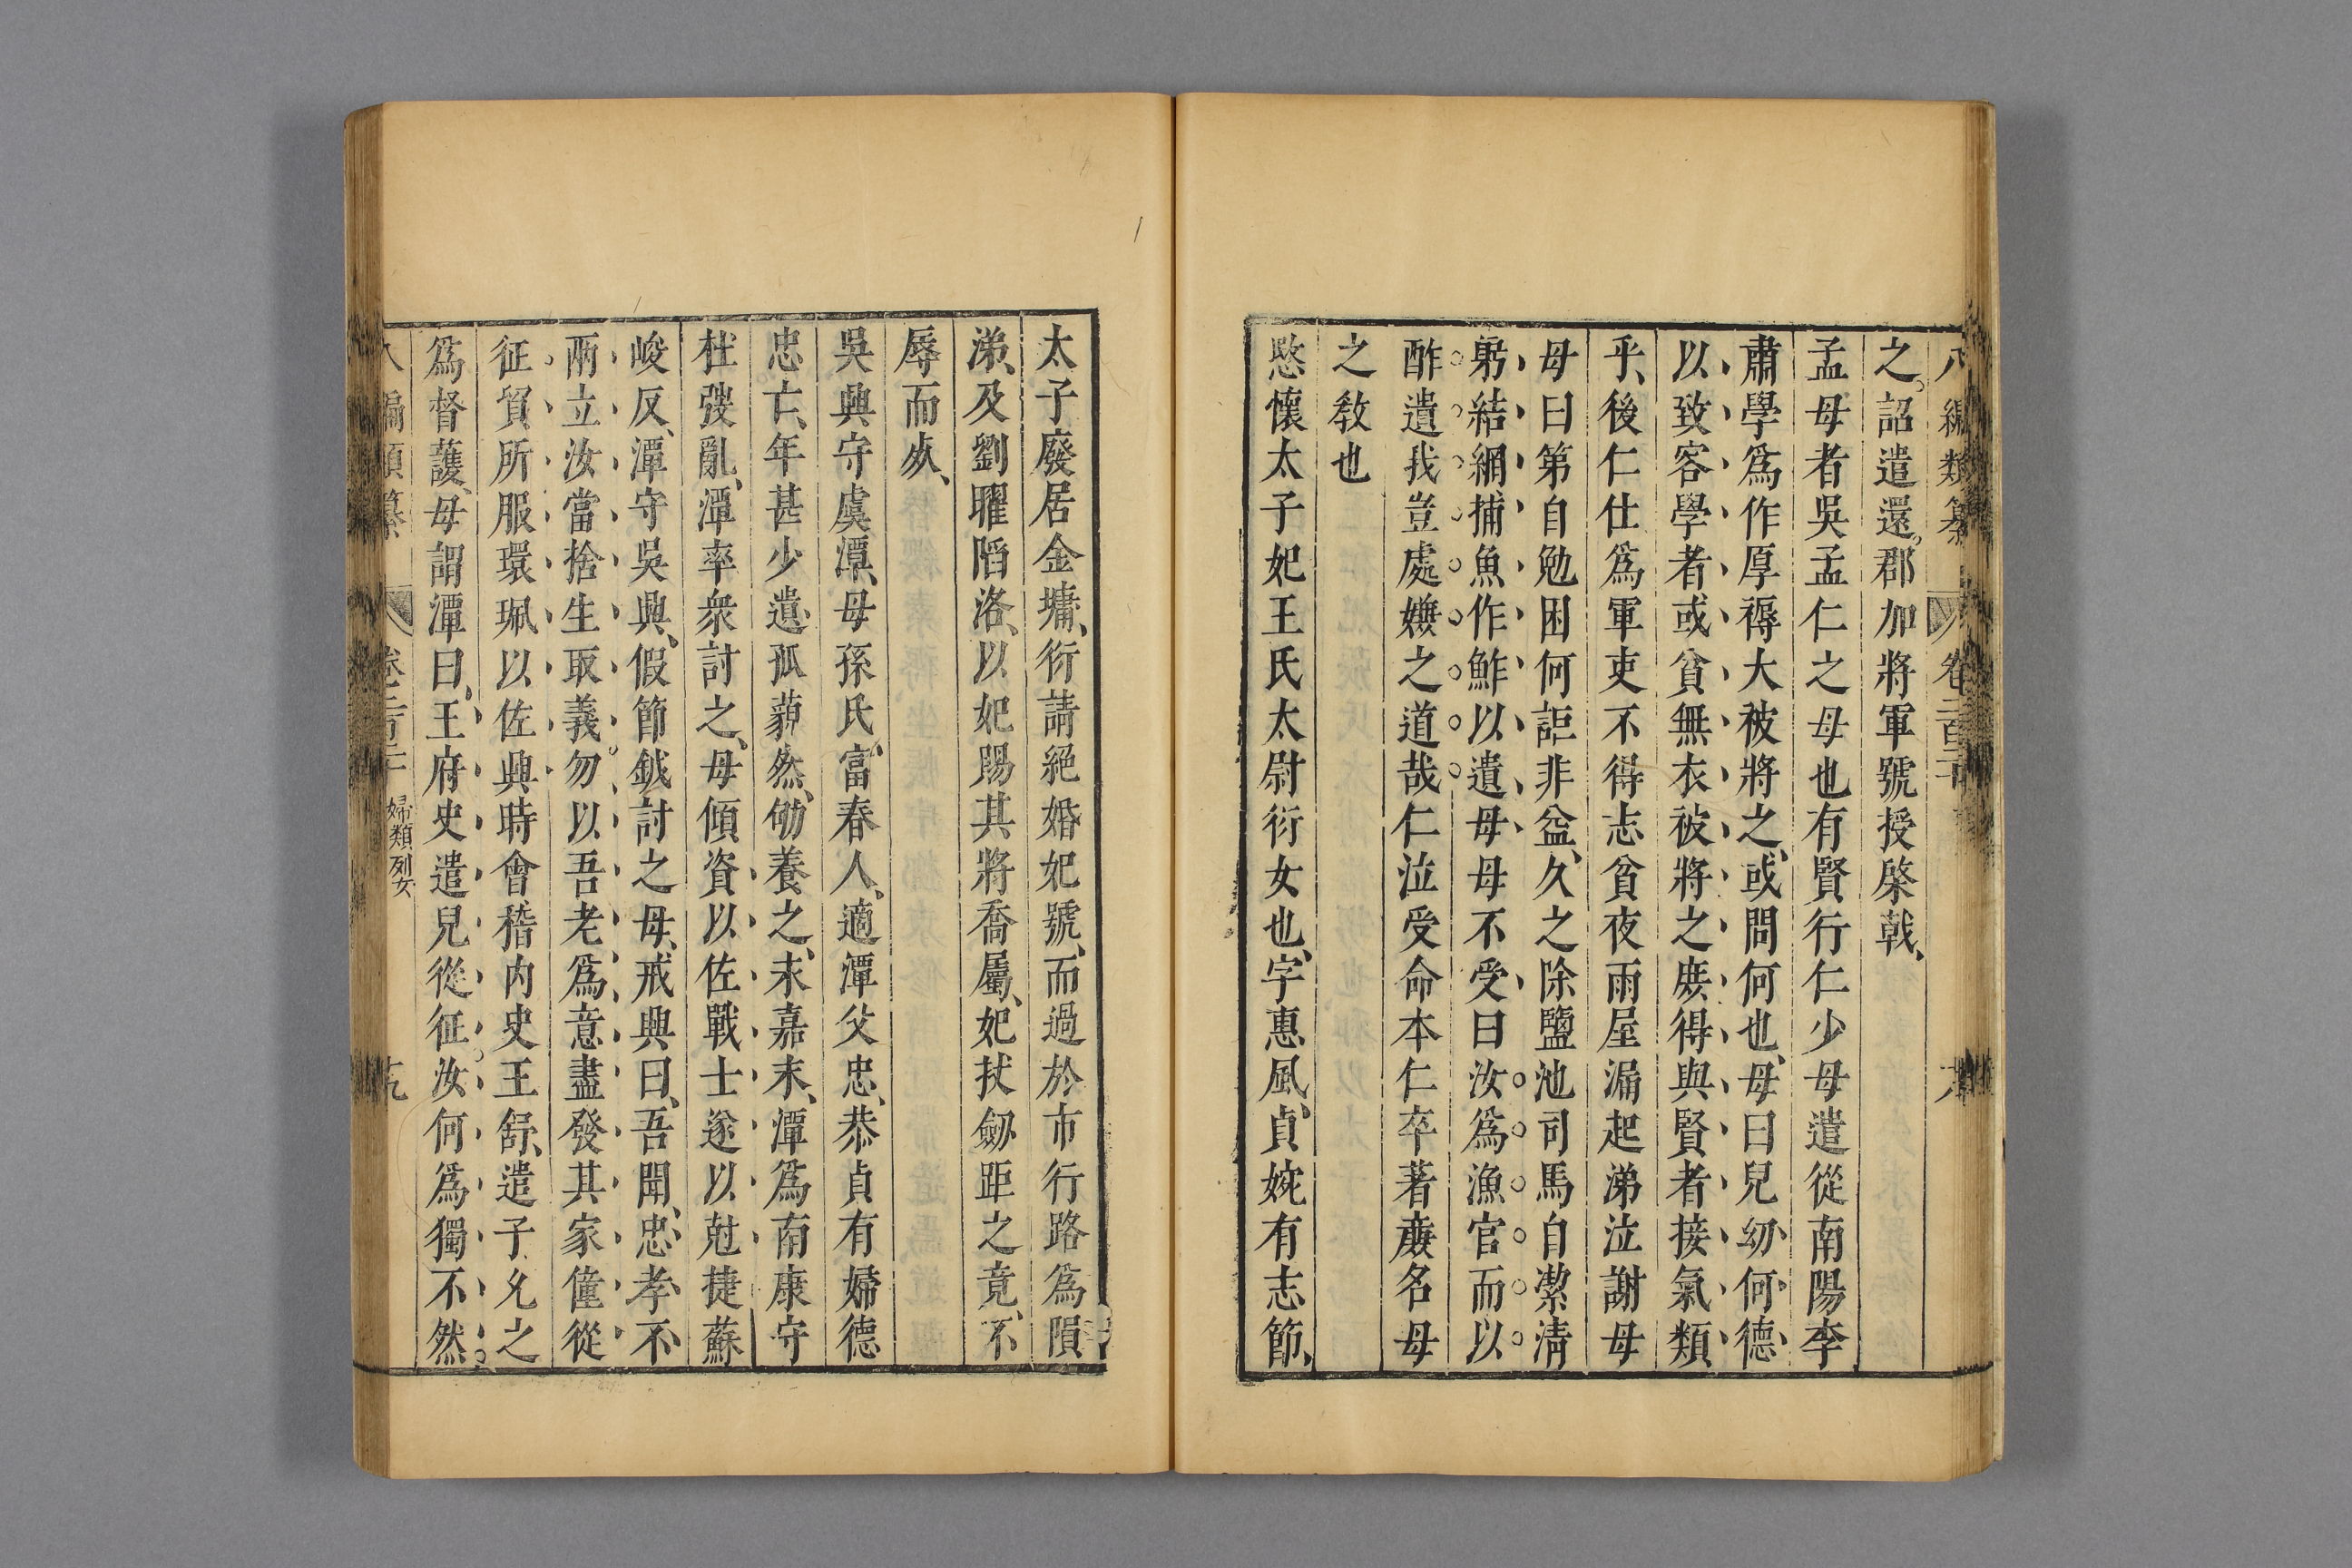 八編類纂 卷二百二十
之詔遣還郡加將軍號授棨戟
孟母者吳孟仁之母也有賢行仁少母遣從南陽李
肅學爲作厚褥大被將之或問何也母曰兒幼何德
以致客學者或貧無衣被將之庶得與賢者接氣類
乎後仁仕爲軍吏不得志貧夜雨屋漏起涕泣謝母
母曰第自勉困何詎非益久之除鹽池司馬自潔清
躬結網捕魚作鮓以遺母母不受曰汝爲漁官而以
酢遺我豈處嫌之道哉仁泣受命本仁卒著廉名母
之教也
愍懷太子妃王氏太尉衍女也字惠風貞婉有志節
太子廢居金墉衍請絕婚妃號而過於市行路爲隕
涕及劉曜陷洛以妃賜其將喬屬妃拔劒距之竟不
辱而死
吳興守虞潭母孫氏富春人適潭父忠恭貞有婦德
忠亡年甚少遺孤藐然劬養之永嘉末潭爲南康守
杜弢亂潭率衆討之母傾資以佐戰士遂以尅捷蘇
峻反潭守吳興假節鉞討之母戒興曰吾聞忠孝不
兩立汝當捨生取義勿以吾老爲意盡發其家僮從
征貿所服環珮以佐興時會稽内史王舒遣子允之
爲督護母謂潭曰王府史遣兒從征汝何爲獨不然
八編類纂 卷二百二十 婦類列女 十九